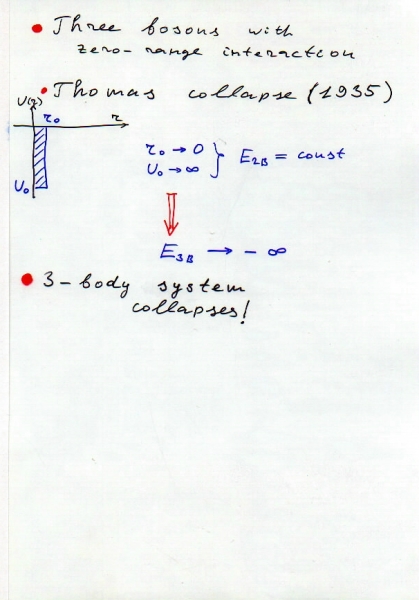 Three bosons with
zero-range interaction
Thomas collapse (1935)
U(r)
r₀
r
U₀
r₀ → 0
U₀ → ∞
E₂B = const
E₃B → - ∞
3-body system
collapses!